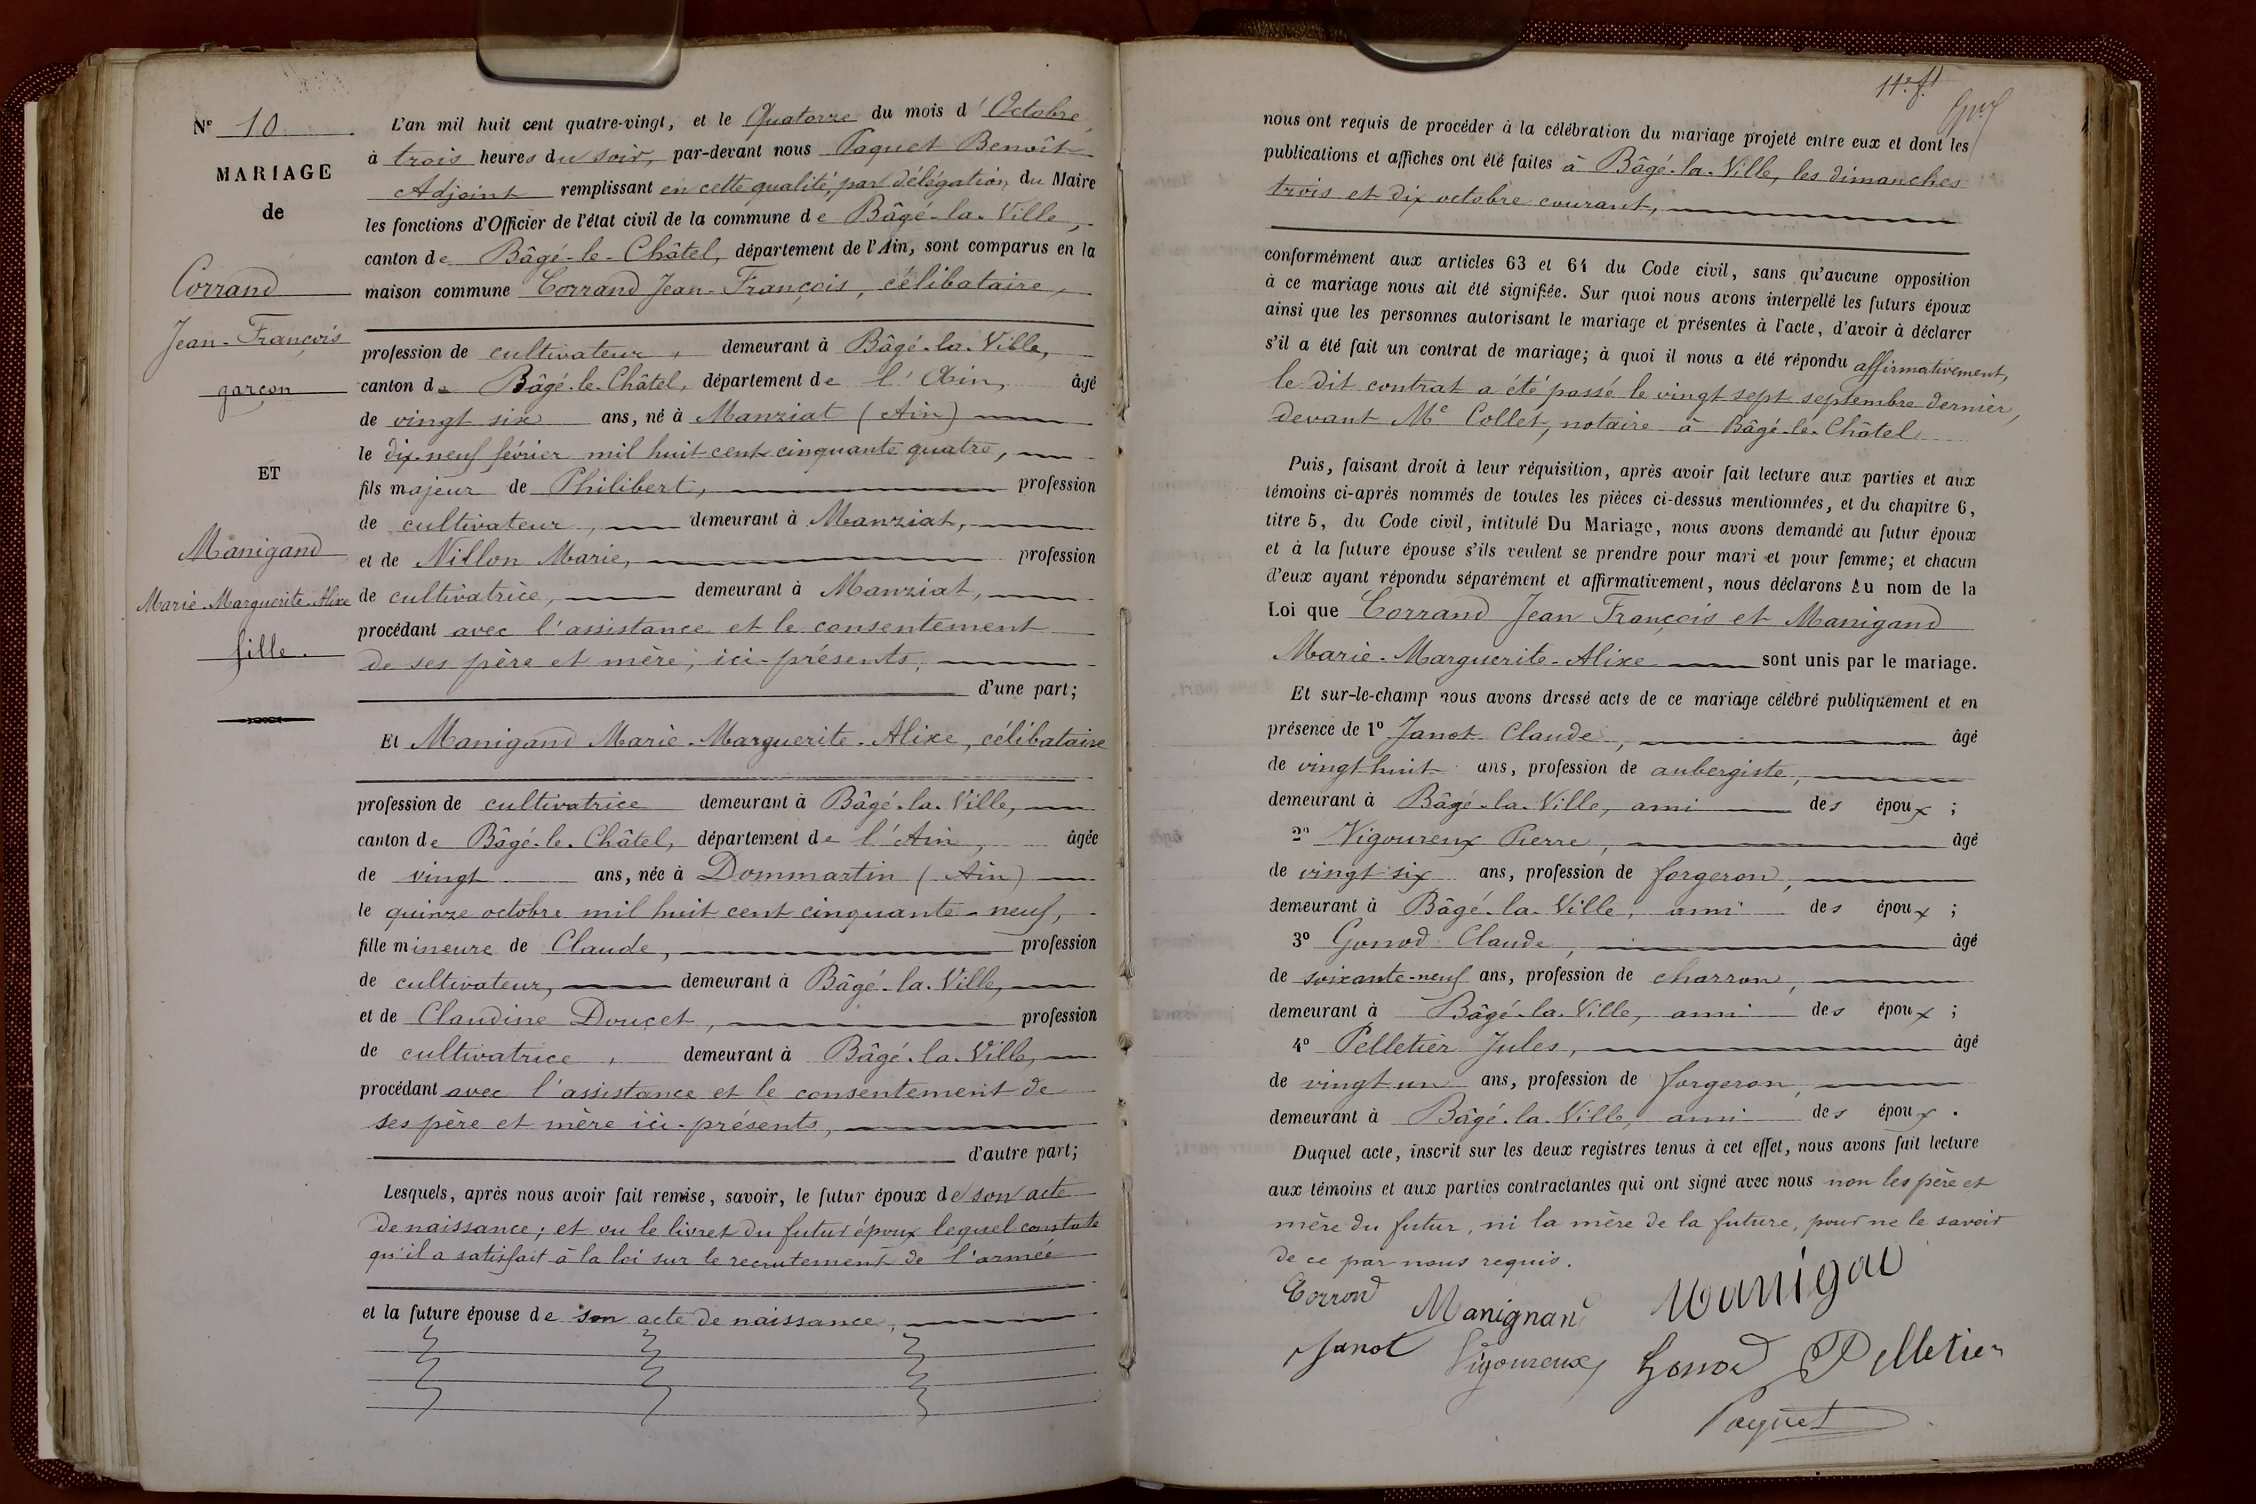 Nº 10
MARIAGE
de
Corrand
Jean-François
garçon
ET
Manigand
Marie-Marguerite-Alixe
fille.
L'an mil huit cent quatre-vingt, et le Quatorze du mois d'Octobre,
à trois heures du soir, par-devant nous Paquet Benoît
Adjoint remplissant en cette qualité, par délégation du Maire
les fonctions d'Officier de l'état civil de la commune de Bâgé-la-Ville,
canton de Bâgé-le-Châtel, département de l'Ain, sont comparus en la
maison commune Corrand Jean-François, célibataire,
profession de cultivateur, demeurant à Bâgé-la-Ville,
canton de Bâgé-le-Châtel, département de l'Ain, âgé
de vingt six ans, né à Manziat (Ain)
le dix-neuf février mil huit cent cinquante quatre,
fils majeur de Philibert, profession
de cultivateur, demeurant à Manziat,
et de Nillon Marie, profession
de cultivatrice, demeurant à Manziat,
procédant avec l'assistance et le consentement
de ses père et mère, ici-présents,
d'une part;
Et Manigand Marie-Marguerite-Alixe, célibataire
profession de cultivatrice demeurant à Bâgé-la-Ville,
canton de Bâgé-le-Châtel, département de l'Ain, âgée
de vingt ans, née à Dommartin (Ain)
le quinze octobre mil huit cent cinquante-neuf,
fille mineure de Claude, profession
de cultivateur, demeurant à Bâgé-la-Ville,
et de Claudine Douçet, profession
de cultivatrice, demeurant à Bâgé-la-Ville,
procédant avec l'assistance et le consentement de
ses père et mère ici-présents,
d'autre part;
Lesquels, après nous avoir fait remise, savoir, le futur époux de son acte
de naissance; et vu le livret du futur époux lequel constate
qu'il a satisfait à la loi sur le recrutement de l'armée
et la future épouse de son acte de naissance,
11e ft
nous ont requis de procéder à la célébration du mariage projeté entre eux et dont les
publications et affiches ont été faites à Bâgé-la-Ville, les dimanches
trois et dix octobre courant,
conformément aux articles 63 et 64 du Code civil, sans qu'aucune opposition
à ce mariage nous ait été signifiée. Sur quoi nous avons interpellé les futurs époux
ainsi que les personnes autorisant le mariage et présentes à l'acte, d'avoir à déclarer
s'il a été fait un contrat de mariage; à quoi il nous a été répondu affirmativement,
le dit contrat a été passé le vingt sept septembre dernier,
devant Me Collet, notaire à Bâgé-le-Châtel
Puis, faisant droit à leur réquisition, après avoir fait lecture aux parties et aux
témoins ci-après nommés de toutes les pièces ci-dessus mentionnées, et du chapitre 6,
titre 5, du Code civil, intitulé Du Mariage, nous avons demandé au futur époux
et à la future épouse s'ils veulent se prendre pour mari et pour femme; et chacun
d'eux ayant répondu séparément et affirmativement, nous déclarons au nom de la
Loi que Corrand Jean François et Manigand
Marie-Marguerite-Alixe sont unis par le mariage.
Et sur-le-champ nous avons dressé acte de ce mariage célébré publiquement et en
présence de 1º Janot Claude, âgé
de vingt huit ans, profession de aubergiste,
demeurant à Bâgé-la-Ville, ami des époux;
2º Vigoureux Pierre, âgé
de vingt six ans, profession de forgeron,
demeurant à Bâgé-la-Ville, ami des époux;
3º Gonod Claude, âgé
de soixante-neuf ans, profession de charron,
demeurant à Bâgé-la-Ville, ami des époux;
4º Pelletier Jules, âgé
de vingt un ans, profession de forgeron,
demeurant à Bâgé-la-Ville, ami des époux.
Duquel acte, inscrit sur les deux registres tenus à cet effet, nous avons fait lecture
aux témoins et aux parties contractantes qui ont signé avec nous non les père et
mère du futur, ni la mère de la future, pour ne le savoir
de ce par nous requis.
Corrand Manignand Manigan
Janot Vigoureux Gonod P elletier
Paquet